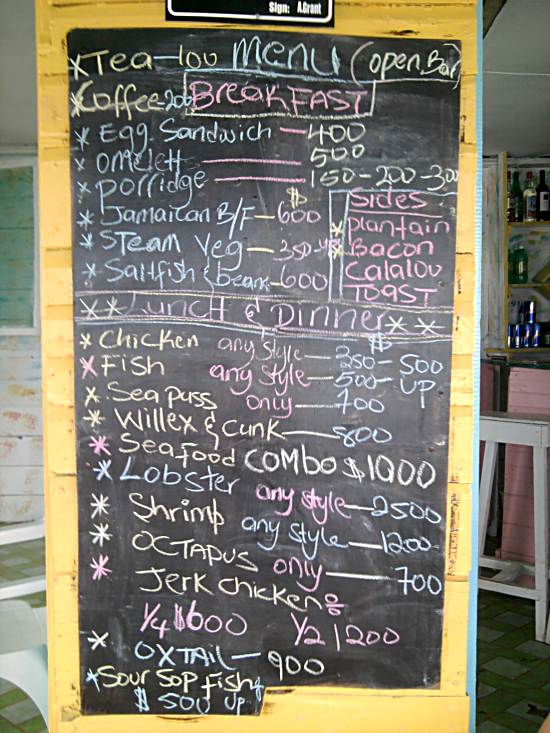 Sign: A.Grant
*Tea-100 MENU (open Bar)
*Coffee-200 BreakFAST
* Egg Sandwich — 400
* omelett — 500
* porridge — 150-200-300
* Jamaican B/F — $600
* STeam Veg — 350-up
* Saltfish & beans-600
Sides
* plantain
* Bacon
Calalou
TOAST
* * Lunch & Dinner * *
* Chicken any Style — $350 - 500
* Fish any Style — 500 - UP
* Sea puss only — 700
* Willex & Cunk — 800
* Seafood COMBO $1000
* Lobster any style — 2500
* Shrimp any style — 1200
* OCTAPUS only — 700
* Jerk chicken:
1/4 $600 1/2 1200
* OXTAIL — 900
*Sour Sop fish
$ 500 up